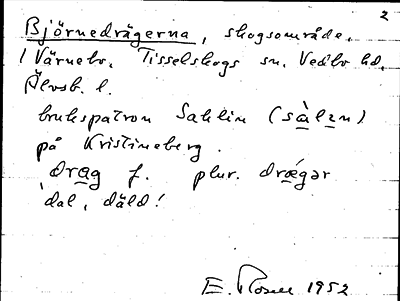 2
Björnedrägerna, skogsområde.
/ Värnebo. Tisselskogs sn. Vedbo hd.
Älvsb. l.
brukspatron Sahlin (sàlɪn)
på Kristineberg.
drag f. plur. drǽgər
'dal, däld'
E. Rosell 1952